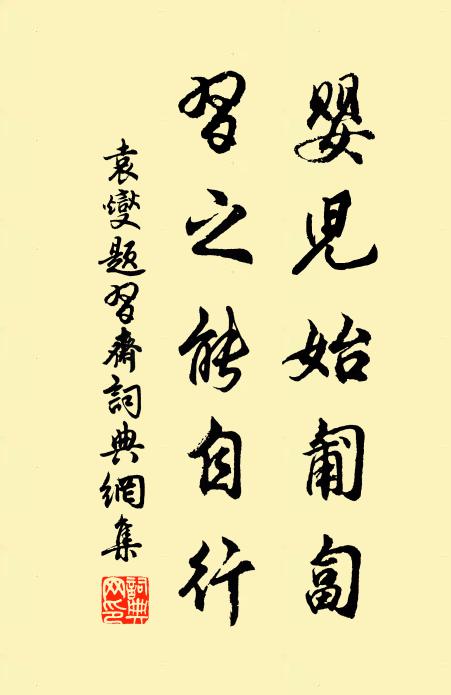 嬰兒始匍匐
習之能自行
袁燮題習齋詞典網集
詞典網印